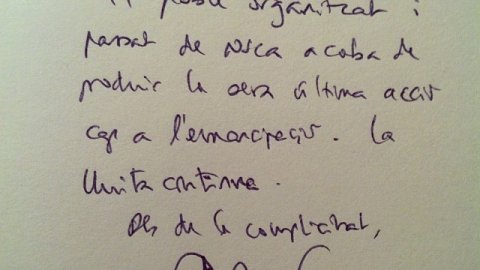 poble organitzat i
passat de rosca acaba de
produir la seva última acció
cap a l'emancipació. La
lluita continua.
Des de la complicitat,